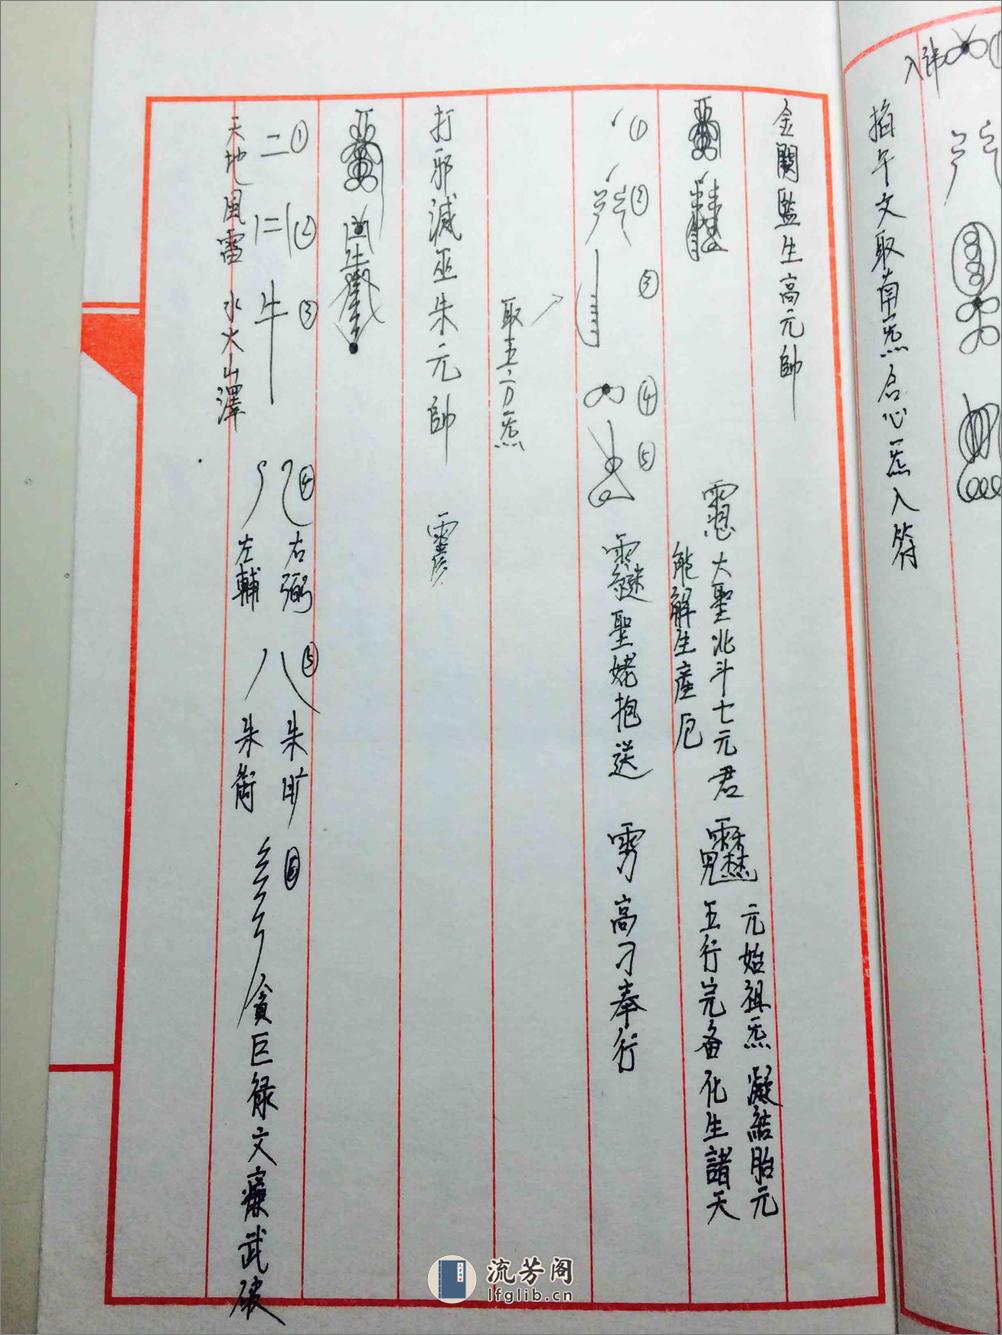 入諱
①
掐午文取南炁启心炁入符
金闕監生高元帥
大聖北斗七元君
能解生產厄
元始祖炁 凝結胎元
五行完备化生諸天
① ② ③ ④ ⑤
聖姥抱送
高刁奉行
取五方炁
打邪滅巫朱元帥
① ② ③ ④ ⑤ ⑥
右弼
左輔
朱
朱衡
天地風雷 水火山澤
貪巨祿文廉武破
流芳阁
lfglib.cn